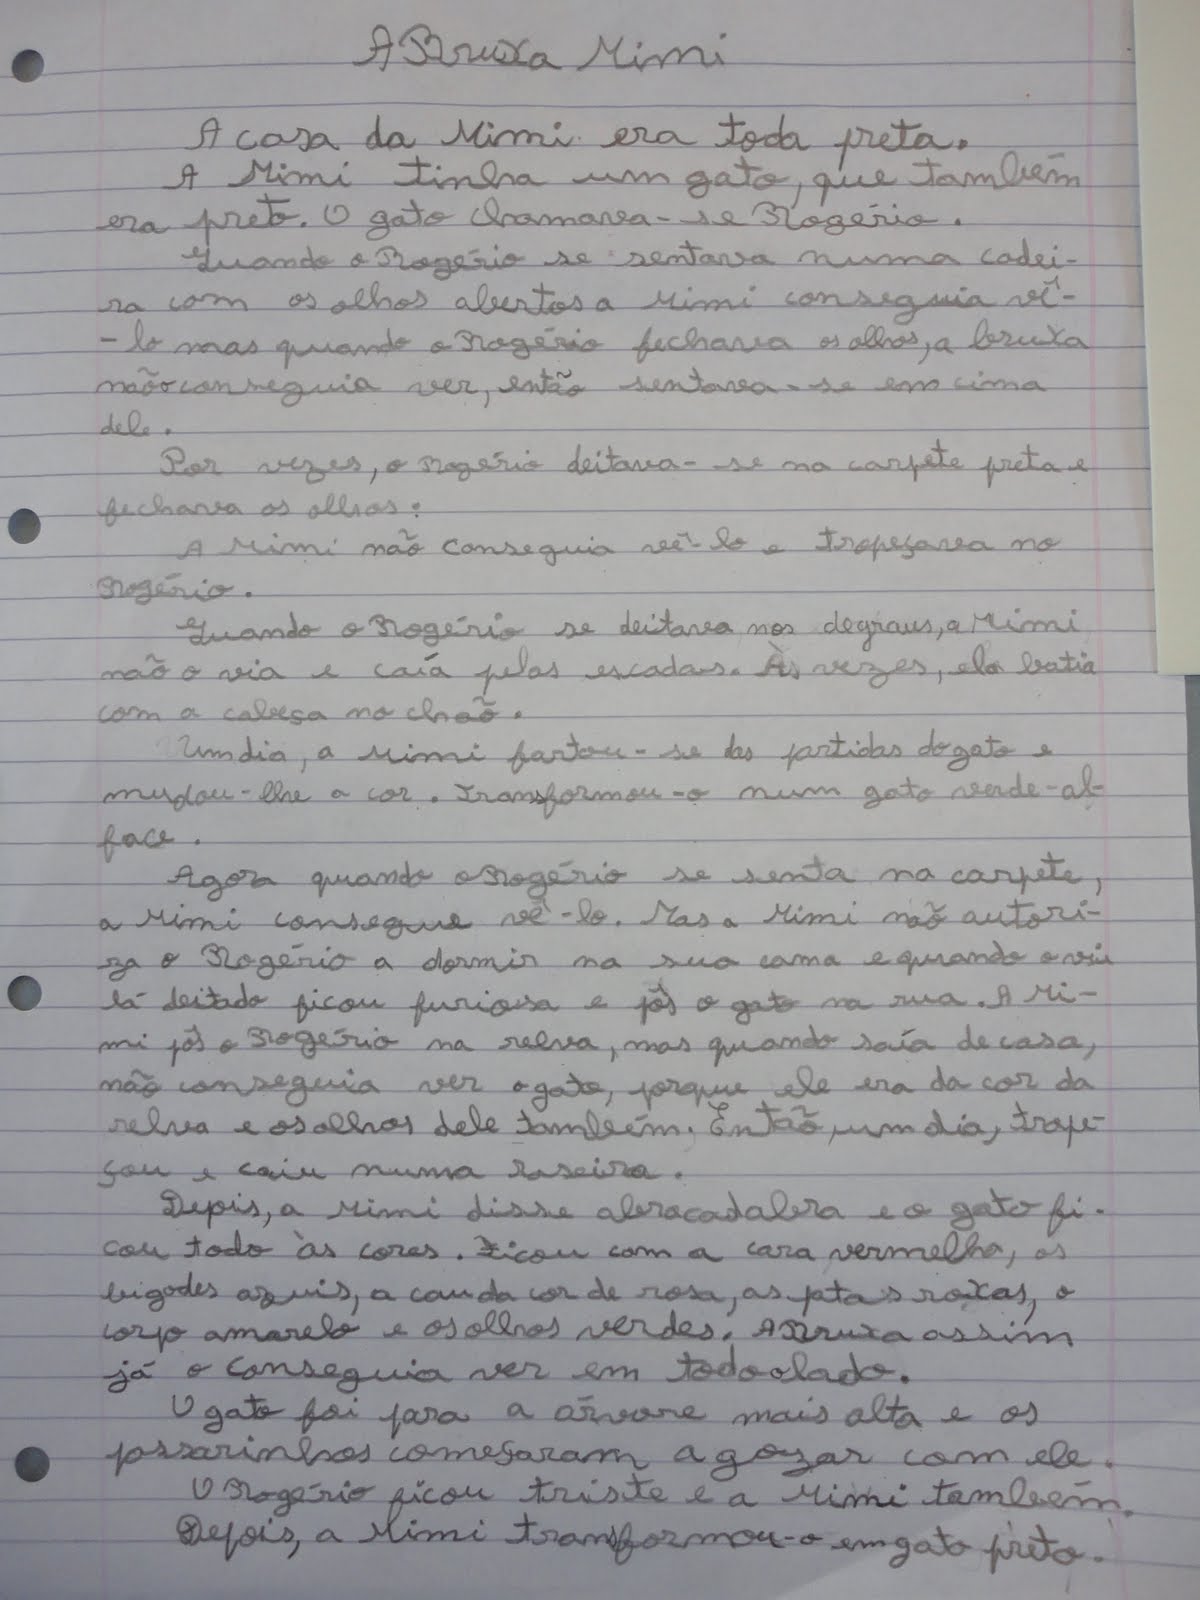 A Bruxa Mimi
A casa da Mimi era toda preta.
A Mimi tinha um gato, que também
era preto. O gato chamava-se Rogério.
Quando o Rogério se sentava numa cadei-
ra com os olhos abertos a Mimi conseguia vê-
-lo mas quando o Rogério fechava os olhos, a bruxa
não o conseguia ver, então sentava-se em cima
dele.
Por vezes, o Rogério deitava-se na carpete preta e
fechava os olhos.
A Mimi não conseguia vê-lo e tropeçava no
Rogério.
Quando o Rogério se deitava nos degraus, a Mimi
não o via e caía pelas escadas. Às vezes, ela batia
com a cabeça no chão.
Um dia, a Mimi fartou-se das partidas do gato e
mudou-lhe a cor. Transformou-o num gato verde-al-
face.
Agora quando o Rogério se senta na carpete,
a Mimi consegue vê-lo. Mas a Mimi não autori-
za o Rogério a dormir na sua cama e quando o viu
lá deitado ficou furiosa e pôs o gato na rua. A Mi-
mi pôs o Rogério na relva, mas quando saía de casa,
não conseguia ver o gato, porque ele era da cor da
relva e os olhos dele também. Então, um dia, trope-
çou e caiu numa roseira.
Depois, a Mimi disse abracadabra e o gato fi-
cou todo às cores. Ficou com a cara vermelha, os
bigodes azuis, a cauda cor de rosa, as patas roxas, o
corpo amarelo e os olhos verdes. A Bruxa assim
já o conseguia ver em todo o lado.
O gato foi para a árvore mais alta e os
passarinhos começaram a gozar com ele.
O Rogério ficou triste e a Mimi também.
Depois, a Mimi transformou-o em gato preto.